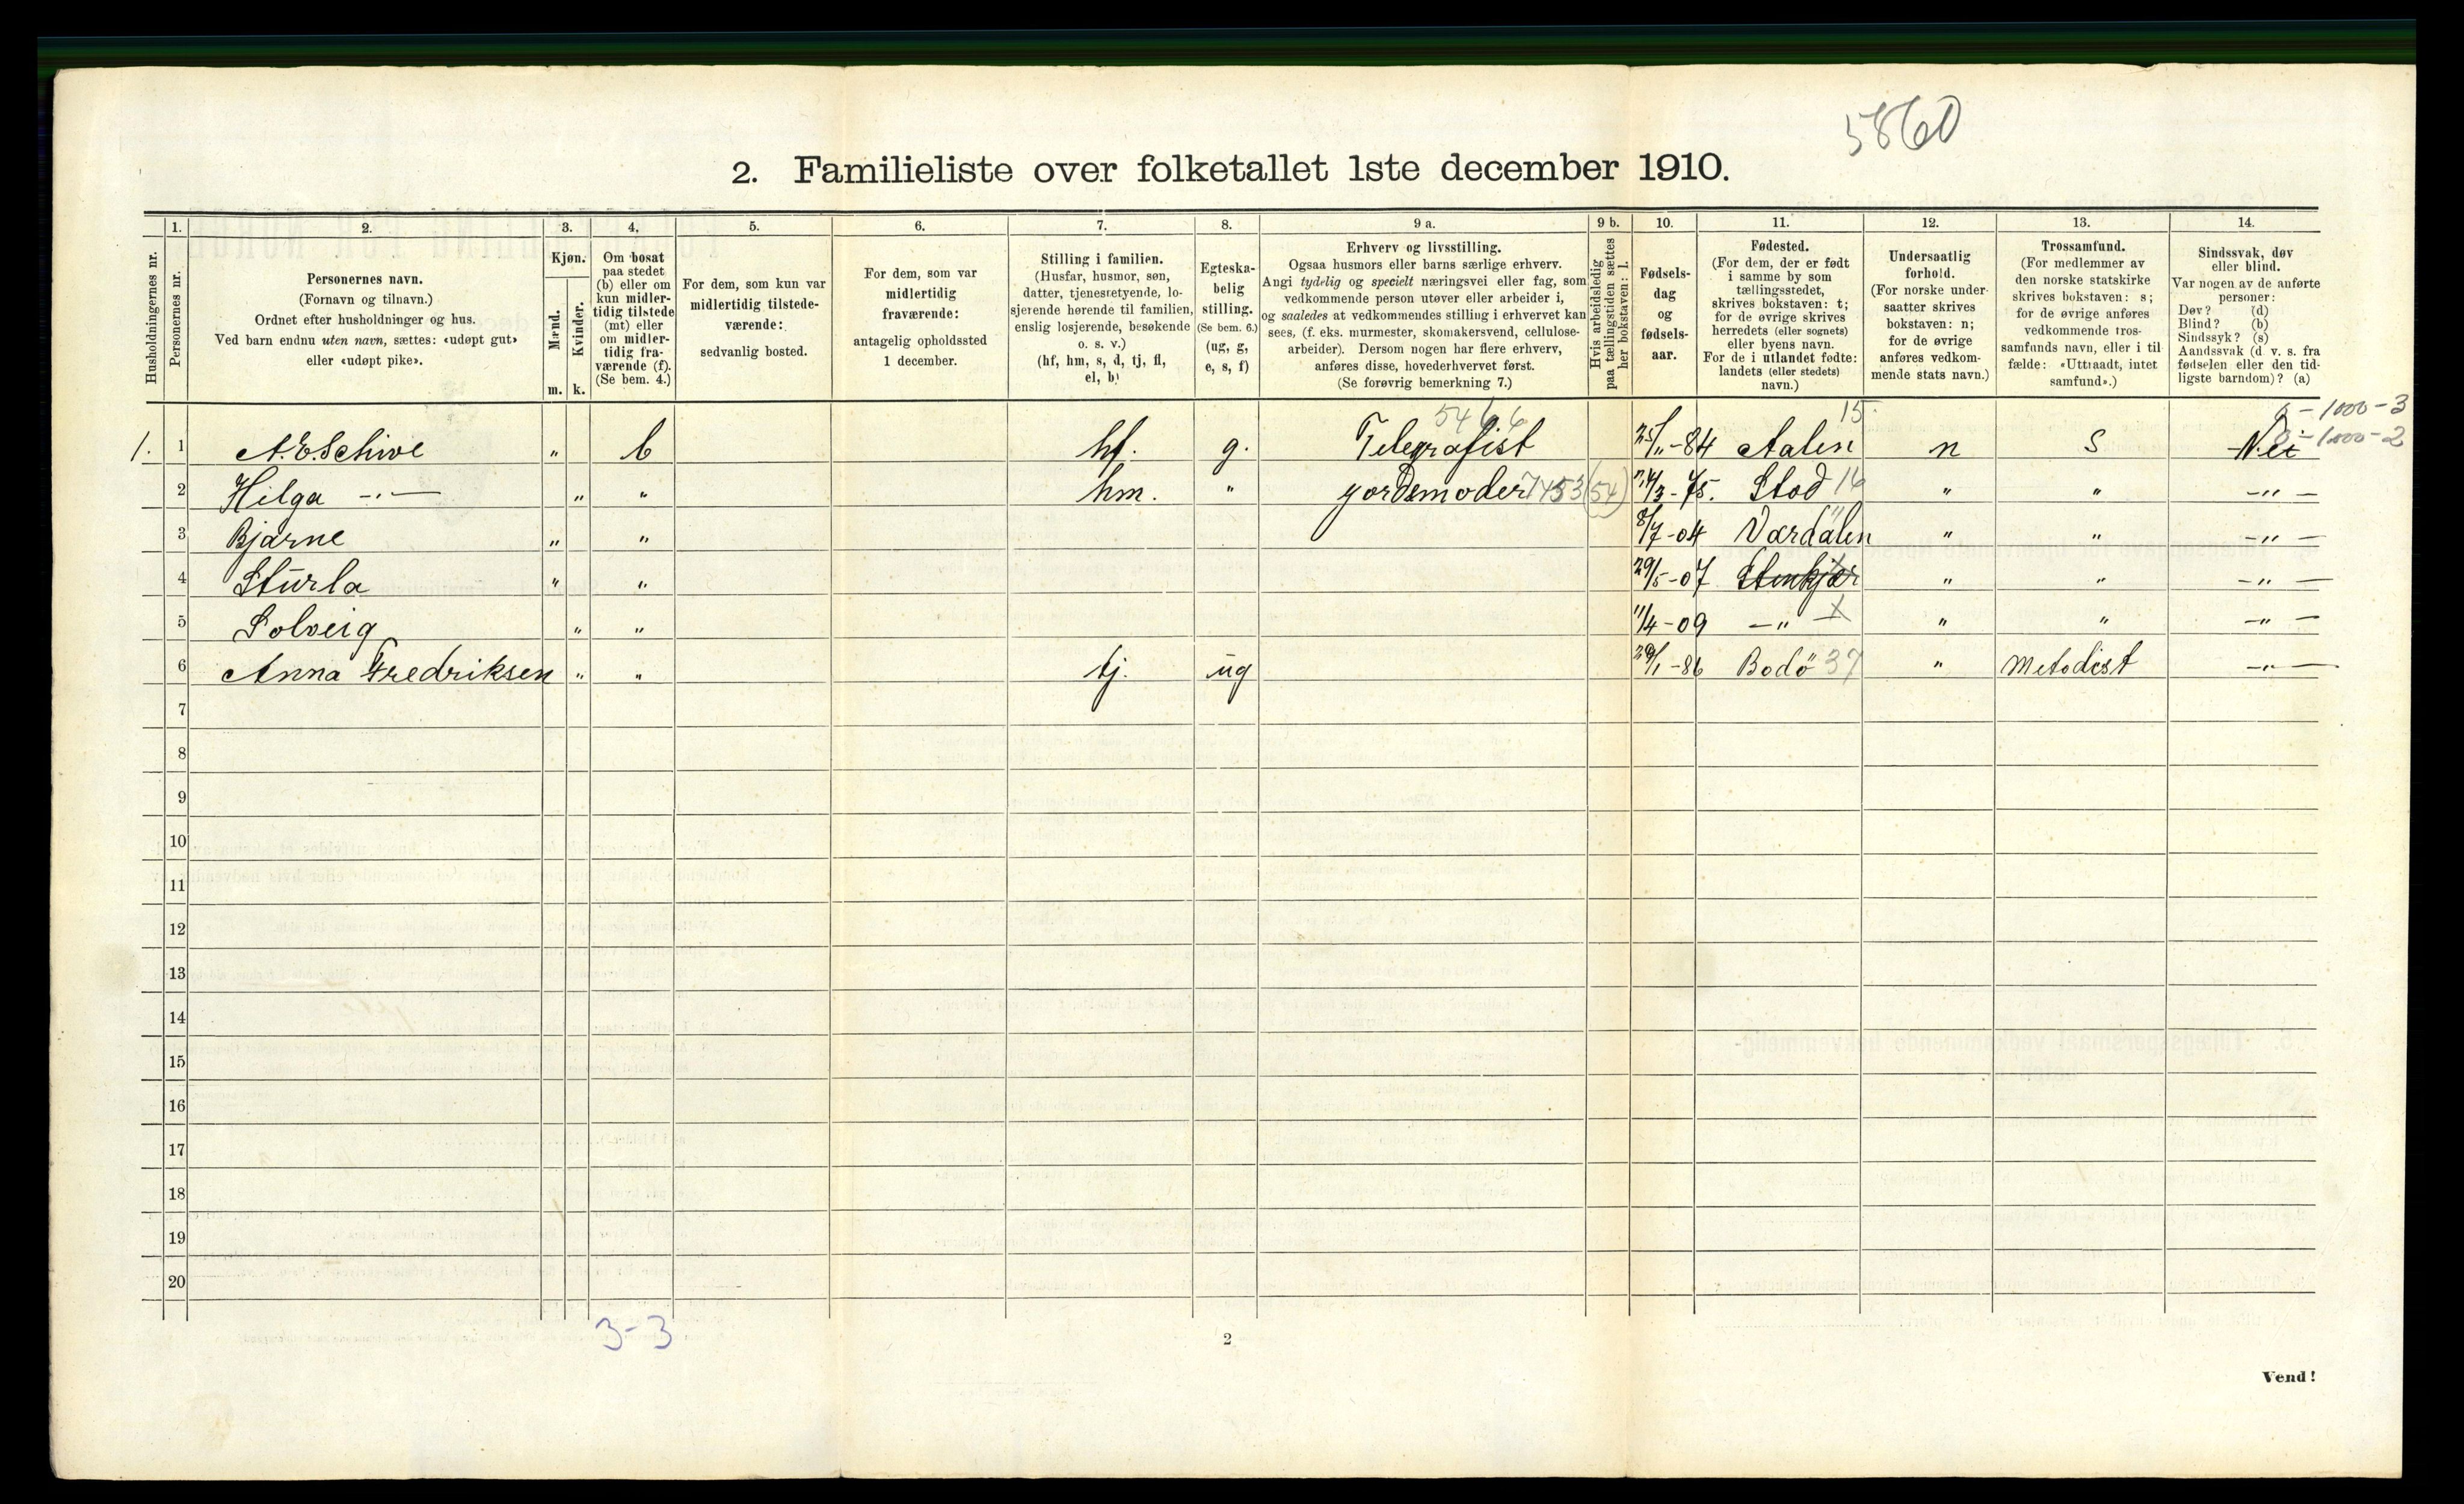 5860
2. Familieliste over folketallet 1ste december 1910.
1. 2. 3. 4. 5. 6. 7. 8. 9 a. 9 b. 10. 11. 12. 13. 14.
Husholdningernes nr.
Personernes nr.
Personernes navn.
(Fornavn og tilnavn.)
Ordnet efter husholdninger og hus.
Ved barn endnu uten navn, sættes: «udøpt gut»
eller «udøpt pike».
Kjøn.
Mænd.
m.
Kvinder.
k.
Om bosat
paa stedet
(b) eller om
kun midler-
tidig tilstede
(mt) eller
om midler-
tidig fra-
værende (f).
(Se bem. 4.)
For dem, som kun var
midlertidig tilstede-
værende:
sedvanlig bosted.
For dem, som var
midlertidig
fraværende:
antagelig opholdssted
1 december.
Stilling i familien.
(Husfar, husmor, søn,
datter, tjenestetyende, lo-
sjerende hørende til familien,
enslig losjerende, besøkende
o. s. v.)
(hf, hm, s, d, tj, fl,
el, b)
Egteska-
belig
stilling.
(Se bem. 6.)
(ug, g,
e, s, f)
Erhverv og livsstilling.
Ogsaa husmors eller barns særlige erhverv.
Angi tydelig og specielt næringsvei eller fag, som
vedkommende person utøver eller arbeider i,
og saaledes at vedkommendes stilling i erhvervet kan
sees, (f. eks. murmester, skomakersvend, cellulose-
arbeider). Dersom nogen har flere erhverv,
anføres disse, hovederhvervet først.
(Se forøvrig bemerkning 7.)
Hvis arbeidsledig
paa tællingstiden sættes
her bokstaven: l.
Fødsels-
dag
og
fødsels-
aar.
Fødested.
(For dem, der er født
i samme by som
tællingsstedet,
skrives bokstaven: t;
for de øvrige skrives
herredets (eller sognets)
eller byens navn.
For de i utlandet fødte:
landets (eller stedets)
navn.)
Undersaatlig
forhold.
(For norske under-
saatter skrives
bokstaven: n;
for de øvrige
anføres vedkom-
mende stats navn.)
Trossamfund.
(For medlemmer av
den norske statskirke
skrives bokstaven: s;
for de øvrige anføres
vedkommende tros-
samfunds navn, eller i til-
fælde: «Uttraadt, intet
samfund».)
Sindssvak, døv
eller blind.
Var nogen av de anførte
personer:
Døv? (d)
Blind? (b)
Sindssyk? (s)
Aandssvak (d. v. s. fra
fødselen eller den tid-
ligste barndom)? (a)
5466 15 0-1000-3
0-1000-2
1. 1 A.E.Schive " b hf. g. Telegrafist 25/11-84 Aalen n S Nei
2 Hilga -"- " " hm. " jordemoder 7453 (54) 24/3-75. Stod 16 " " -"-
3 Bjarne " " 8/7-04 Værdalen " " -"-
4 Sturla " " 29/5-07 Stenkjær " " -"-
5 Solveig " " 11/4-09 -"- x " " -"-
6 Anna Fredriksen " " tj. ug 29/1-86 Bodø 37 " Metodist -"-
7
8
9
10
11
12
13
14
15
16
17
18
19
20
3-3
2
Vend!